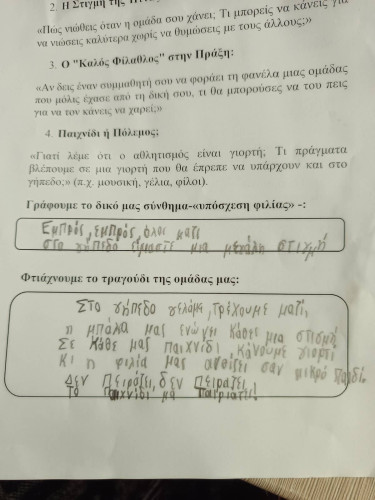 2. Η Στιγμή της
«Πώς νιώθεις όταν η ομάδα σου χάνει; Τι μπορείς να κάνεις για
να νιώσεις καλύτερα χωρίς να θυμώσεις με τους άλλους;»
3. Ο "Καλός Φίλαθλος" στην Πράξη:
«Αν δεις έναν συμμαθητή σου να φοράει τη φανέλα μιας ομάδας
που μόλις έχασε από τη δική σου, τι θα μπορούσες να του πεις
για να τον κάνεις να χαρεί;»
4. Παιχνίδι ή Πόλεμος;
«Γιατί λέμε ότι ο αθλητισμός είναι γιορτή; Τι πράγματα
βλέπουμε σε μια γιορτή που θα έπρεπε να υπάρχουν και στο
γήπεδο;» (π.χ. μουσική, γέλια, φίλοι).
Γράφουμε το δικό μας σύνθημα-«υπόσχεση φιλίας» -:
Εμπρός, εμπρός, όλοι μαζί
στο γήπεδο είμαστε μια μεγάλη στιγμή
Φτιάχνουμε το τραγούδι της ομάδας μας:
Στο γήπεδο γελάμε, τρέχουμε μαζί,
η μπάλα μας ενώνει κάθε μια στιγμή
Σε κάθε μας παιχνίδι κάνουμε γιορτή
Κι η φιλία μας ανθίζει σαν μικρό παιδί.
Δεν πειράζει, δεν πειράζει
το παιχνίδι να ταιριάζει!